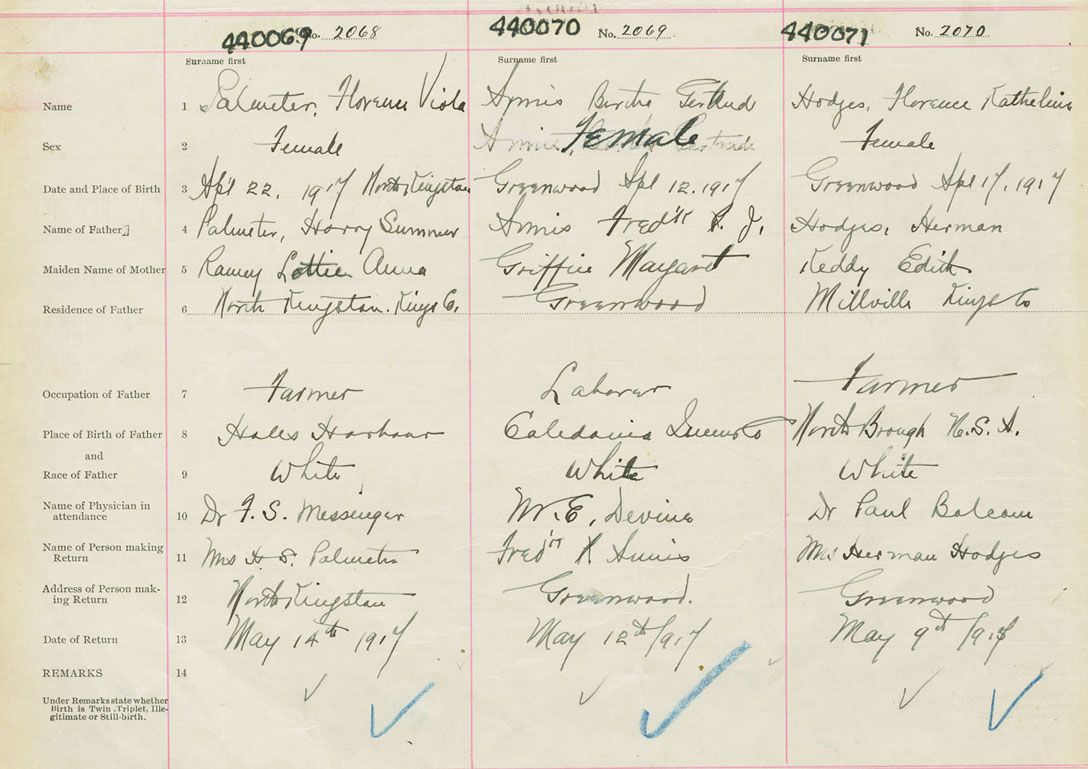 440069 No. 2068 440070 No. 2069 440071 No. 2070
Surname first Surname first Surname first
Name 1 Palmeter, Florence Viola Annis Bertha Gertrude Hodges, Florence Kathelina
Sex 2 Female Female Female
Date and Place of Birth 3 Apl 22, 1917 North Kingston Greenwood Apl 12, 1917 Greenwood Apl 17, 1917
Name of Father 4 Palmeter, Harry Sumner Annis Fred'k R. J. Hodges, Herman
Maiden Name of Mother 5 Lottie Anna Griffin Margaret Keddy Edith
Residence of Father 6 North Kingston. Kings Co. Greenwood Millville Kings Co
Occupation of Father 7 Farmer Laborer Farmer
Place of Birth of Father 8 Halls Harbour Caledonia Queens Co North Brough U.S.A.
and
Race of Father 9 White White White
Name of Physician in
attendance 10 Dr F. S. Messenger W. E. Devine Dr Paul Balcom
Name of Person making
Return 11 Mrs H. S. Palmeter Fred'k R. Annis Mrs Herman Hodges
Address of Person mak-
ing Return 12 North Kingston Greenwood. Greenwood
Date of Return 13 May 14th 1917 May 12th/917 May 9th/918
REMARKS 14
Under Remarks state whether
Birth is Twin, Triplet, Ille-
gitimate or Still-birth.